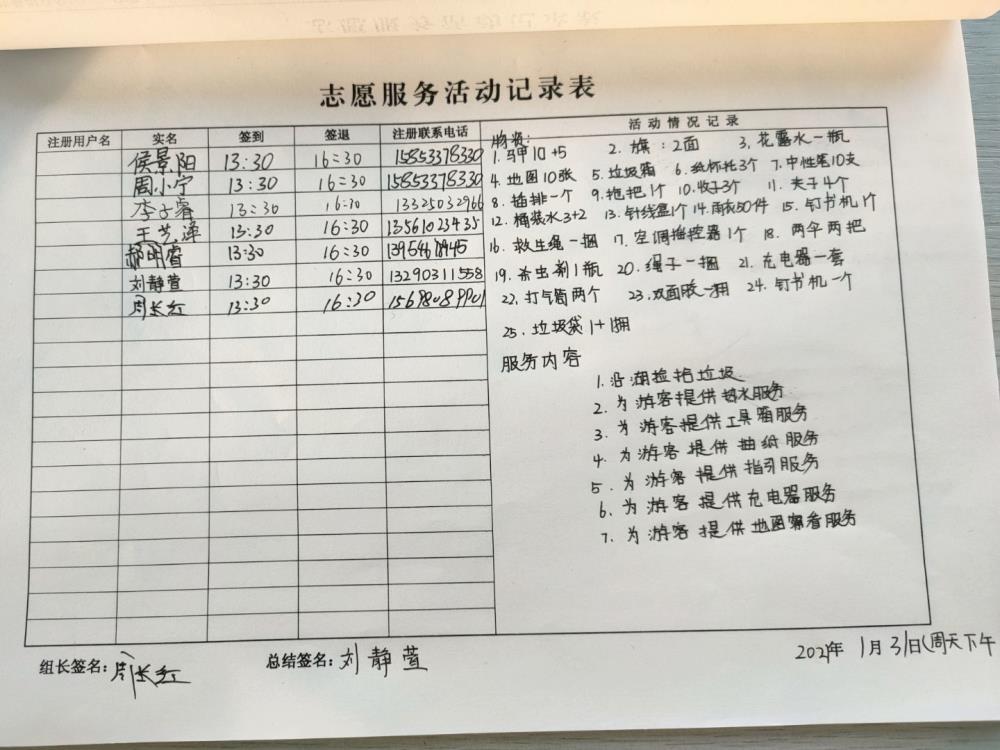 志愿服务活动记录表
注册用户名 实名 签到 签退 注册联系电话 活动情况记录
侯景阳 13:30 16:30 15853378330
周小宁 13:30 16:30 15853378330
李子睿 13:30 16:30 13325032966
王艺泽 13:30 16:30 13561023435
郝明睿 13:30 16:30
刘静萱 13:30 16:30 13290311558
周长红 13:30 16:30 15698089901
物资:
1. 马甲10+5 2. 旗:2面 3. 花露水一瓶
4. 地图10张 5. 垃圾箱 6. 纸杯托3个 7. 中性笔10支
8. 插排一个 9. 拖把1个 10. 收子3个 11. 夹子4个
12. 桶装水3+2 13. 针线盒1个 14. 雨衣50件 15. 钉书机1个
16. 救生绳一捆 17. 空调摇控器1个 18. 两伞两把
19. 杀虫剂1瓶 20. 绳子一捆 21. 充电器一套
22. 打气筒两个 23. 双面胶一捆 24. 钉书机一个
25. 垃圾袋1+1捆
服务内容
1. 沿湖捡拾垃圾
2. 为游客提供热水服务
3. 为游客提供工具箱服务
4. 为游客提供抽纸服务
5. 为游客提供指引服务
6. 为游客提供充电器服务
7. 为游客提供地图察看服务
组长签名:周长红 总结签名:刘静萱 2021年1月31日(周天下午